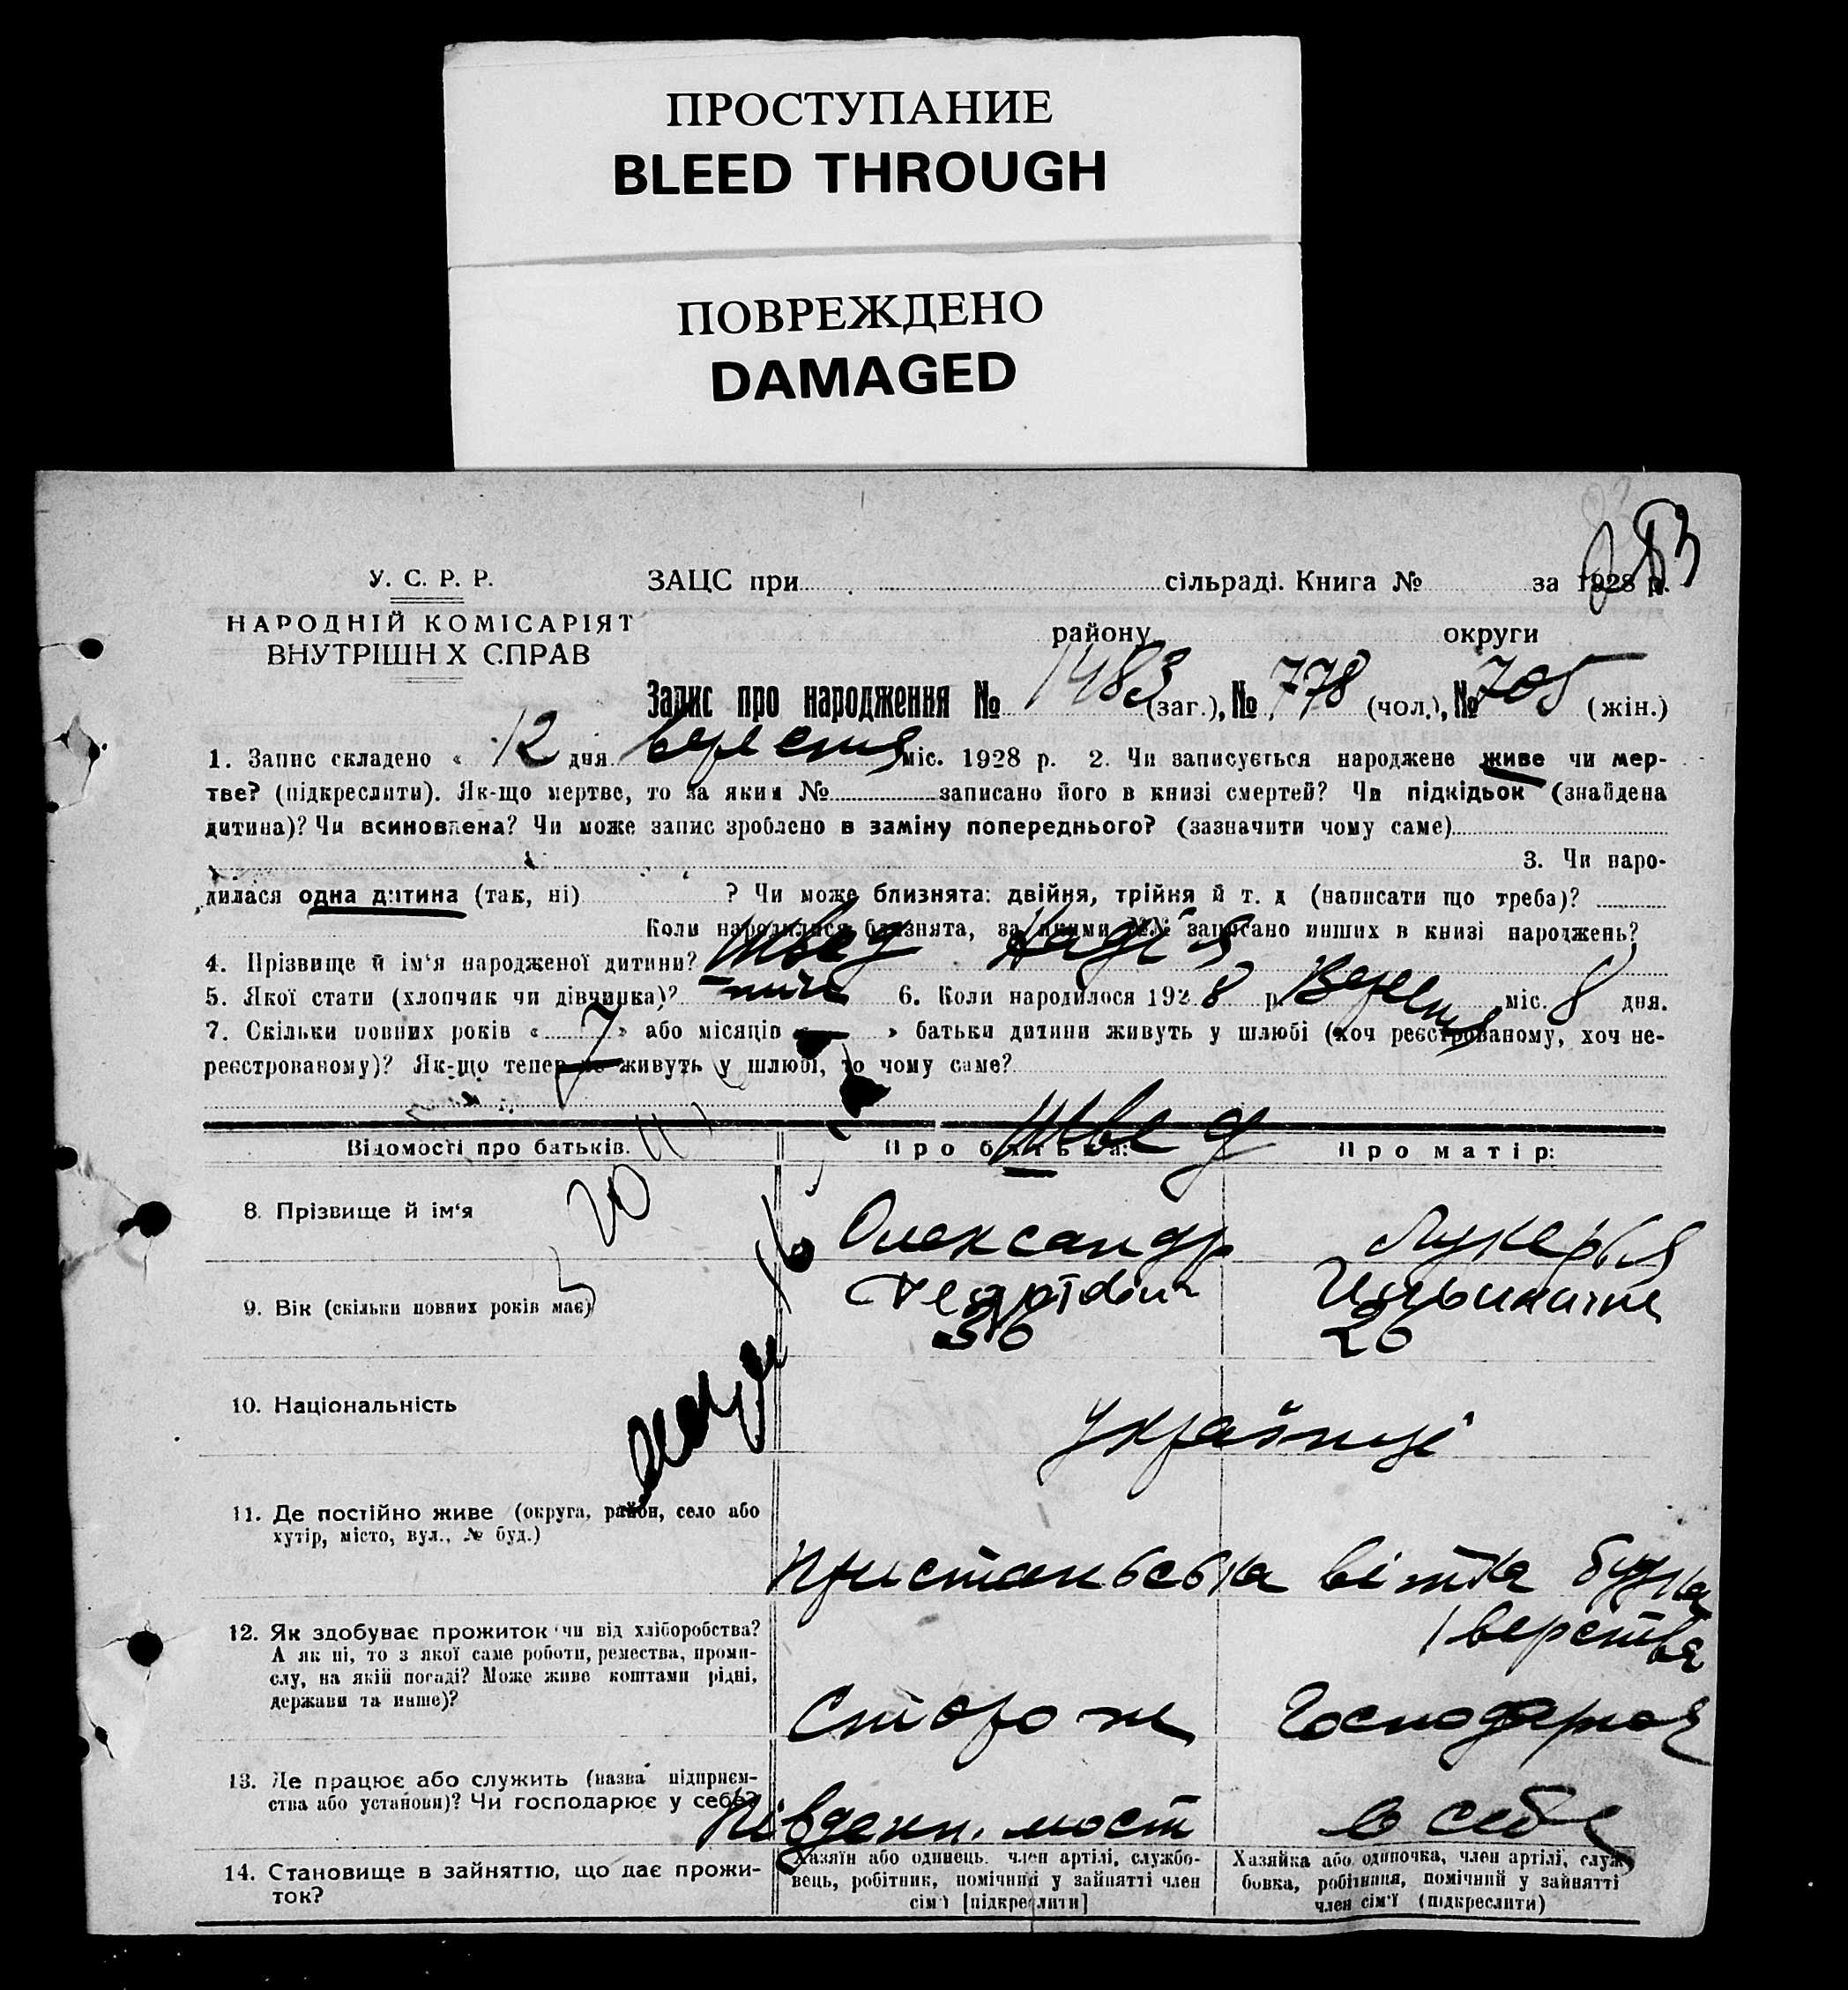 ПРОСТУПАНИЕ
BLEED THROUGH
ПОВРЕЖДЕНО
DAMAGED
У. С. Р. Р.
НАРОДНІЙ КОМІСАРІЯТ
ВНУТРІШН Х СПРАВ
ЗАЦС при сільраді. Книга № за 1928 р.
району округи
Запис про народження № 1483 (заг.), № 778 (чол.), № 705 (жін.)
1. Запис складено « 12 дня вересня міс. 1928 р. 2. Чи записується народжене живе чи мер-
тве? (підкреслити). Як-що мертве, то за яким № записано його в книзі смертей? Чи підкідьок (знайдена
дитина)? Чи всиновлена? Чи може запис зроблено в заміну попереднього? (зазначити чому саме)
3. Чи наро-
дилася одна дитина (так, ні) ? Чи може близнята: двійня, трійня й т. д (написати що треба)?
Коли народилися близнята, за якими №№ записано инших в книзі народжень?
4. Прізвище й ім'я народженої дитини? Швед Надія
5. Якої стати (хлопчик чи дівчинка)? жін 6. Коли народилося 1928 р. Вересня міс. 8 дня.
7. Скільки повних років « 7 » або місяців « — » батьки дитини живуть у шлюбі (хоч реєстрованому, хоч не-
реєстрованому)? Як-що тепер не живуть у шлюбі, то чому саме?
Швед
Відомості про батьків. Про батька: Про матір:
8. Прізвище й ім'я Олександр Лукерья
9. Вік (скільки повних років має) 36 26
10. Національність Українці
11. Де постійно живе (округа, район, село або
хутір, місто, вул., № буд.)
Пристаньська вітка будка
1 верства
12. Як здобуває прожиток чи від хліборобства?
А як ні, то з якої саме роботи, ремества, проми-
слу, на якій посаді? Може живе коштами рідні,
держави та инше)?
Сторож Господарноя
13. Де працює або служить (назва підприєм-
ства або установи)? Чи господарює у себе?
Південн. мост в себе
14. Становище в зайняттю, що дає прожи-
ток?
Хазяїн або одинець, член артілі, службо-
вець, робітник, помічний у зайнятті член
сім'ї [підкреслити]
Хазяйка або одиночка, член артілі, служ-
бовка, робітниця, помічний у зайнятті
член сім'ї (підкреслити)